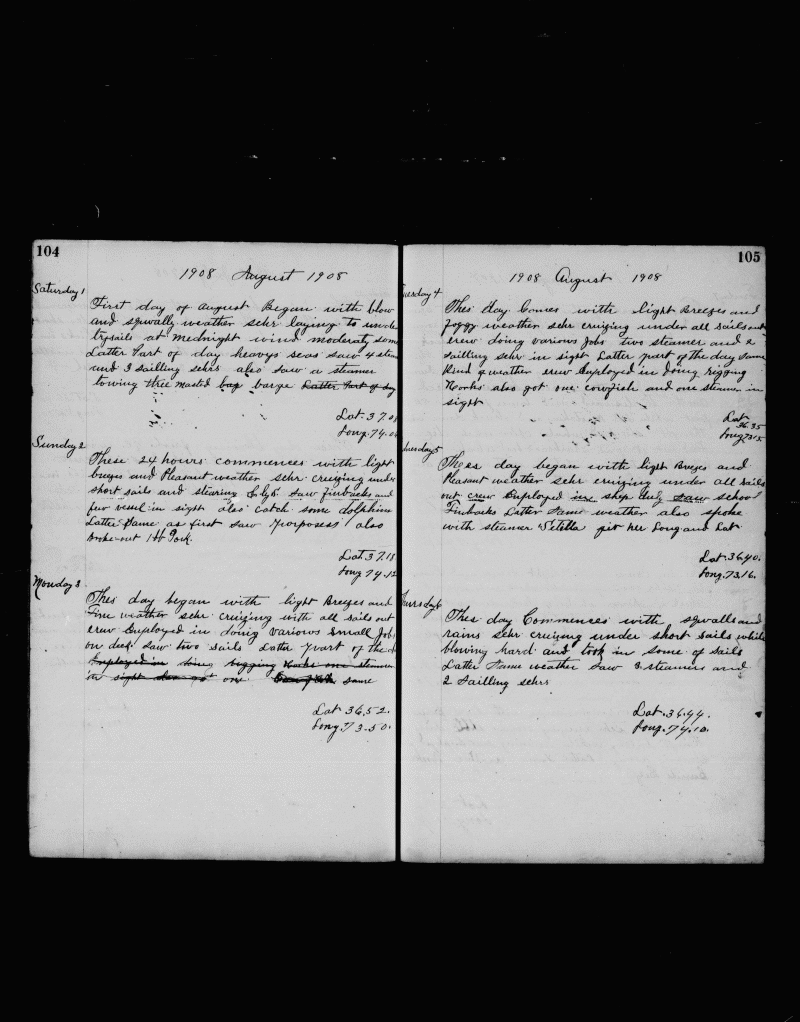 104
1908 August 1908
Saturday 1
First day of august Began with blow
and squally weather schr laying to under
trysails at mednight wind moderatly some
Latter Part of day heavys seas saw 4 steam
und 3 sailling schrs also saw a steamer
towing three masted bag barge Latter Part of day
Lat. 37.0
Long. 74.0
Sunday 2
These 24 hours commences with light
breezes and Pleasant weather schr cruizing under
short sails and stearing saw finbacks and
few vessel in sight also catch some dolphins
Latter Same as first saw porposes also
broke-out Pork.
Lat. 37.18
Long 74.12
Monday 3
Thes day began with light Breezes and
Fine weather schr cruizing with all sails out
crew Employed in doing various small Jobs
on deck saw two sails Latter part of the d
Employed in doing rigging works one steamer
in sight also got one Cowfish same
Lat 36.52.
Long. 73-50.
105
1908 August 1908
uesday 4
Thes day Comes with light Breezes and
foggy weather schr cruizing under all sails out
crew doing various Jobs two steamer and 2
sailling schr in sight Latter part of the day same
Kind of weather crew Employed in doing rigging
Works also got one cowfish and one steamer in
sight
Lat
36.35
Long 73.15
nesday 5
Thes day began with light Breezes and
Pleasant weather schr cruizing under all sails
out crew Employed in ship duty saw school
Finbacks Latter Same weather also spoke
with steamer giv her Long and Lat
Lat. 36.40.
Long. 73.16.
hursday 6
Thes day Commences with squalls and
rains schr cruizing under short sails while
blowing hard and took in some of sails
Latter Same weather saw 3 steamers and
2 Sailling schrs
Lat. 36.44.
Long. 74.10.